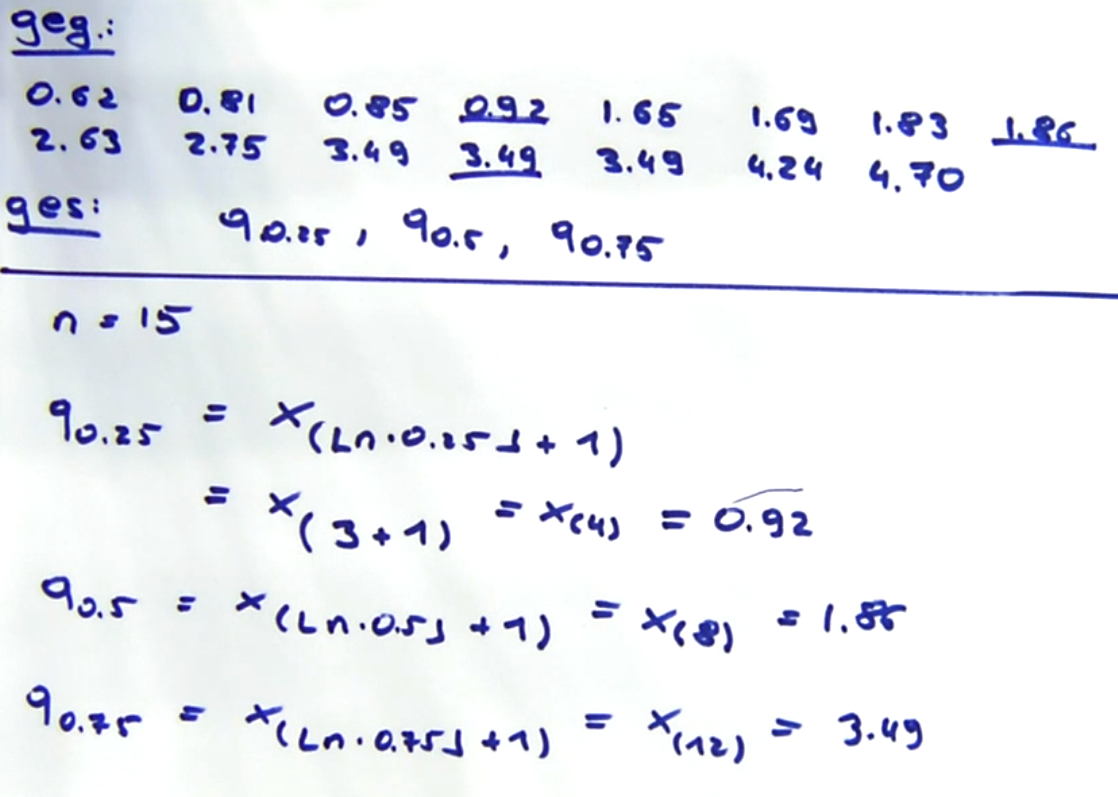 geg.:
0.62 0.81 0.85 0.92 1.65 1.69 1.83 1.86
2.63 2.75 3.49 3.49 3.49 4.24 4.70
ges: q0.25, q0.5, q0.75
n = 15
q0.25 = x(⌊n·0.25⌋ + 1)
= x(3+1) = x(4) = 0.92
q0.5 = x(⌊n·0.5⌋ + 1) = x(8) = 1.86
q0.75 = x(⌊n·0.75⌋ + 1) = x(12) = 3.49